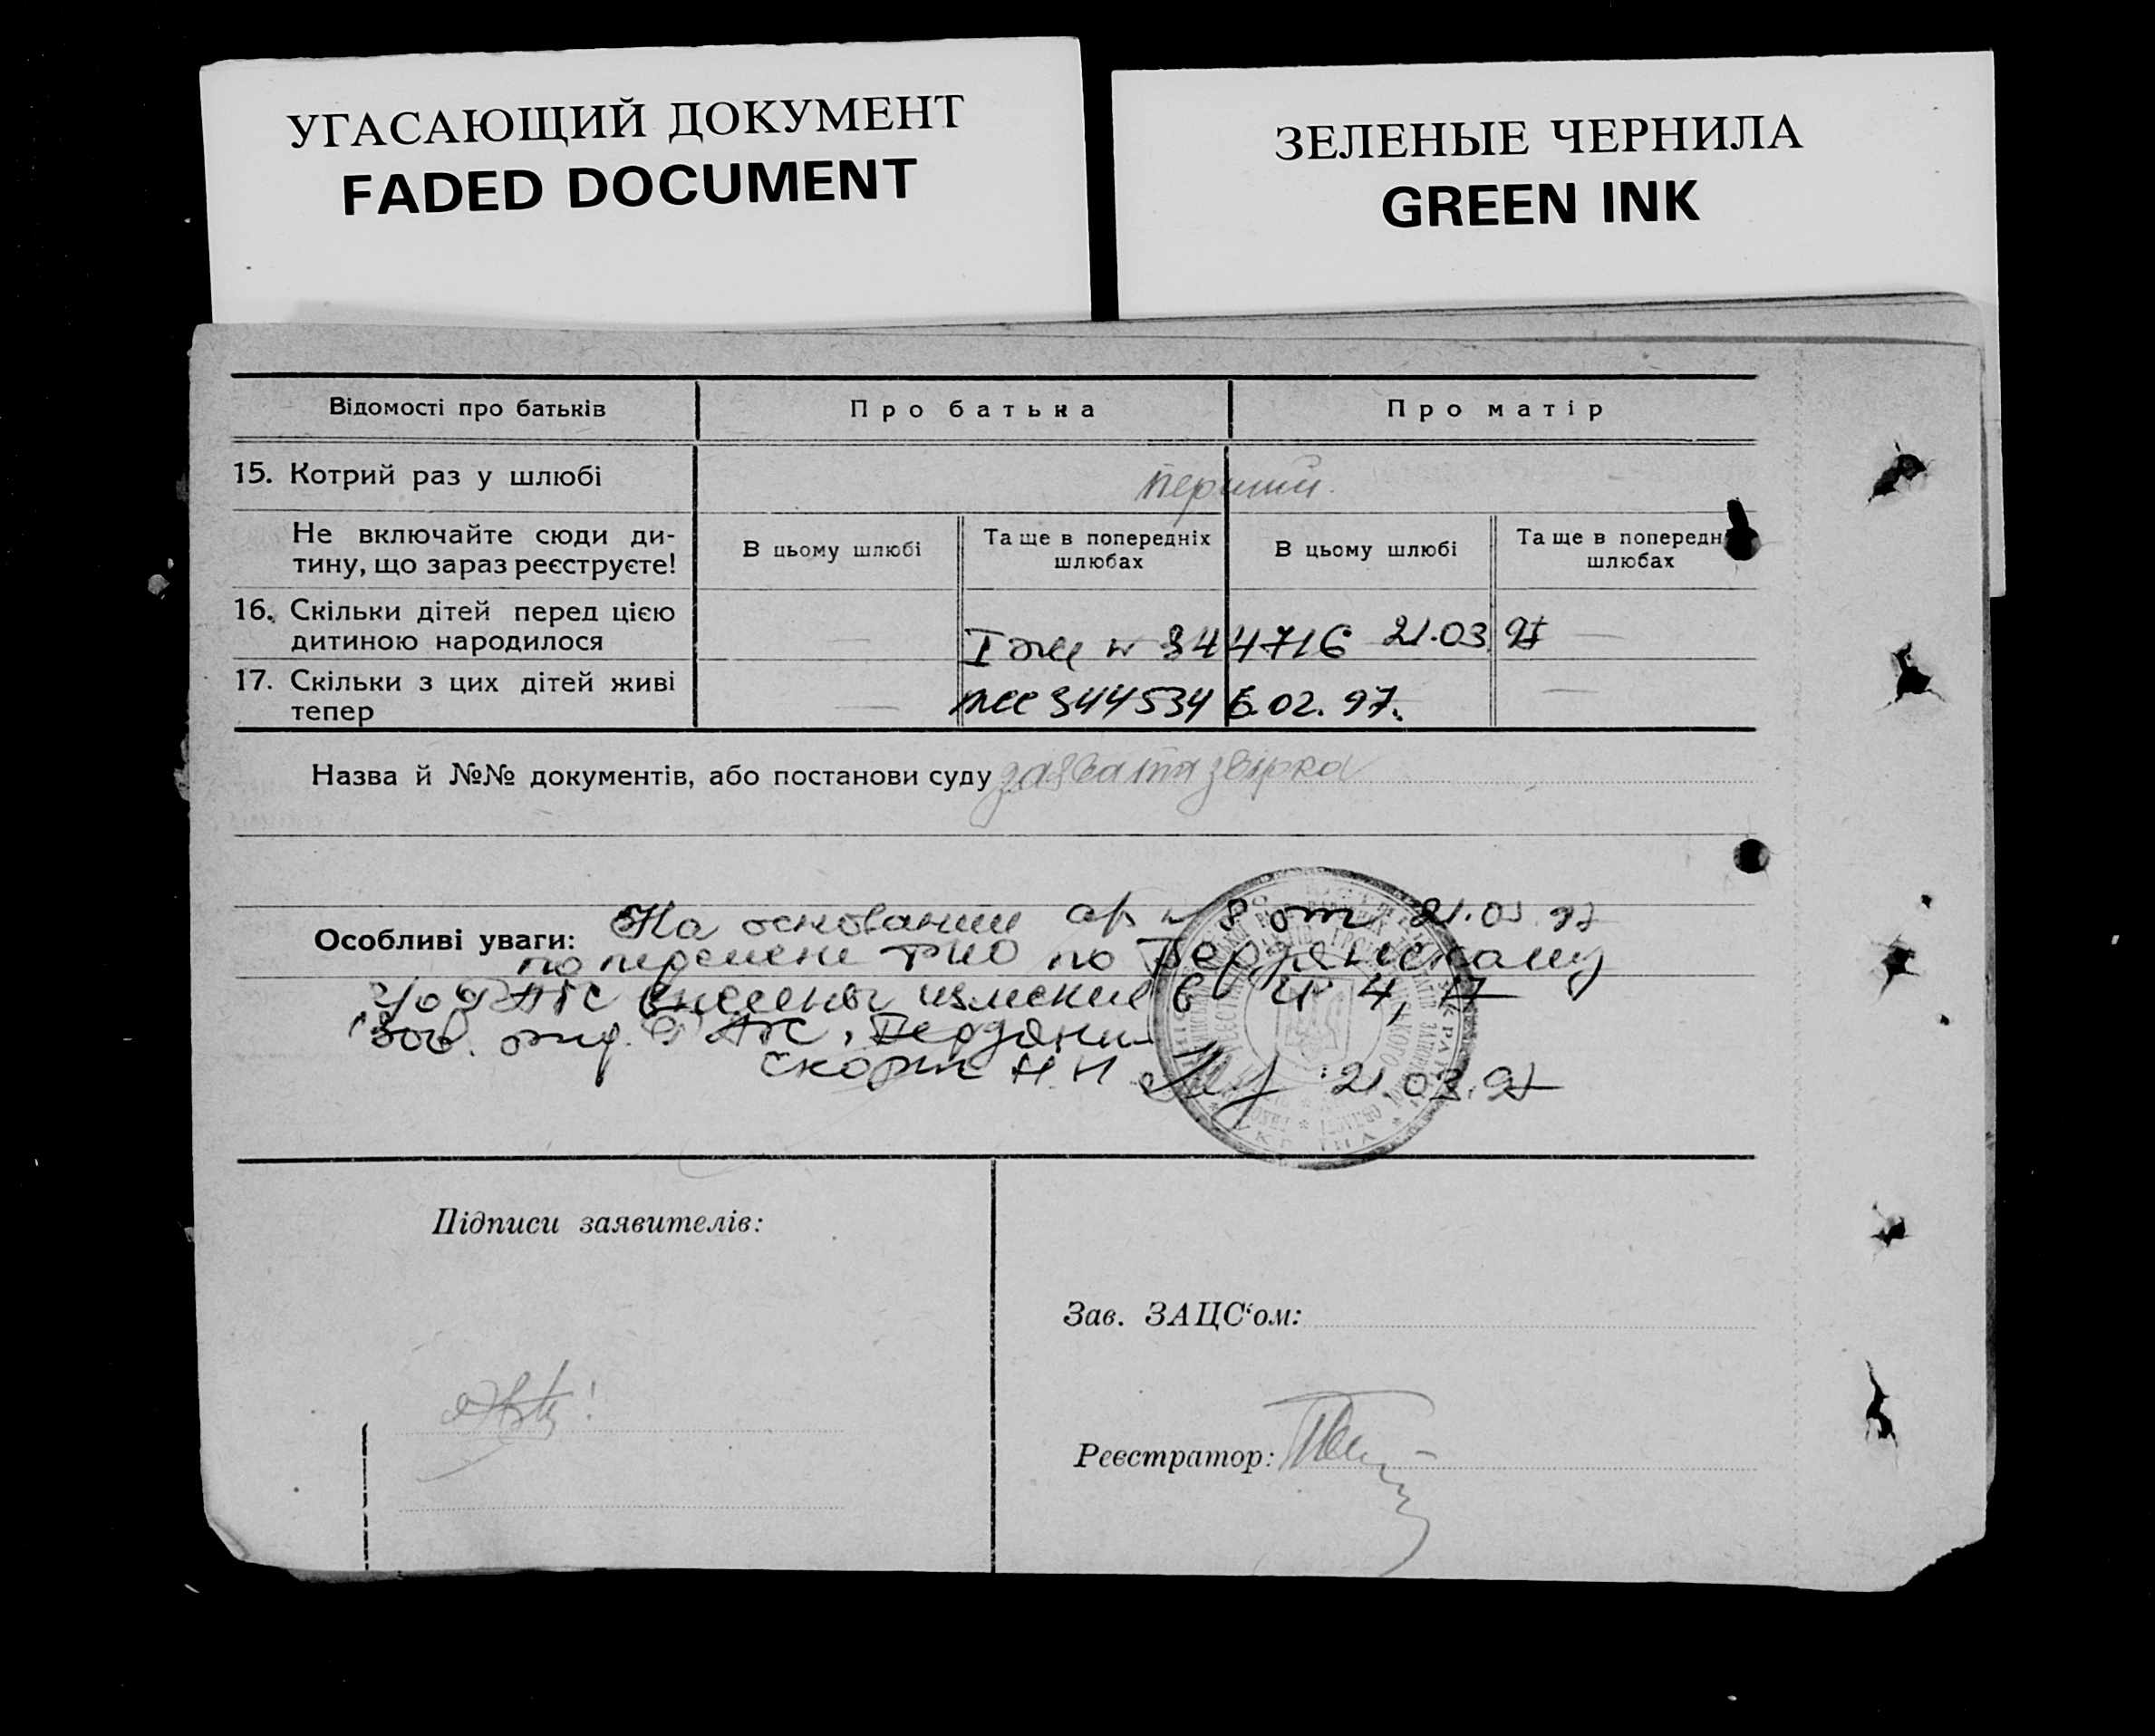 УГАСАЮЩИЙ ДОКУМЕНТ
FADED DOCUMENT
ЗЕЛЕНЫЕ ЧЕРНИЛА
GREEN INK
Відомості про батьків
Про батька
Про матір
15. Котрий раз у шлюбі
перший.
Не включайте сюди ди-
тину, що зараз реєструєте!
В цьому шлюбі
Та ще в попередніх
шлюбах
В цьому шлюбі
Та ще в попередн
шлюбах
16. Скільки дітей перед цією
дитиною народилося
344716 21.03.97
17. Скільки з цих дітей живі
тепер
344534 6.02.97.
Назва й №№ документів, або постанови суду заява та звірка
Особливі уваги:
На основании 8 от 21.03.97
по перемене ФИО по Бердянскому
внесены в 4,
21.03.97
УКРАЇНА
Підписи заявителів:
Зав. ЗАЦС‘ом:
Реєстратор: